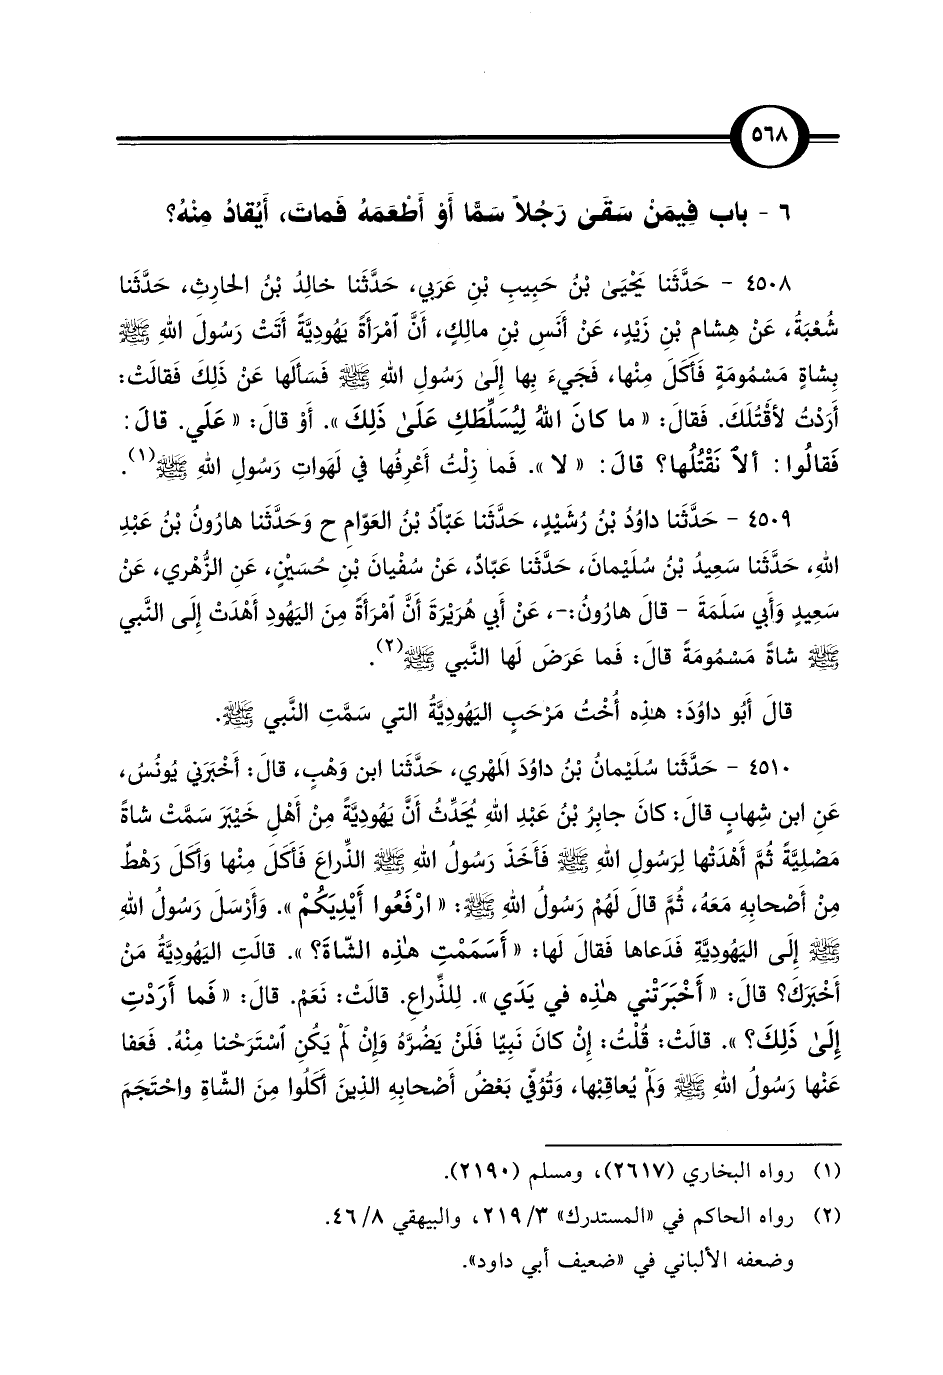 ٥٦٨
٦ - باب فِيمَنْ سَقَىٰ رَجُلاً سَمًّا أَوْ أَطْعَمَهُ فَماتَ، أَيُقادُ مِنْهُ؟
٤٥٠٨ - حَدَّثَنا يَحْيَىٰ بْنُ حَبِيبِ بْنِ عَرَبي، حَدَّثَنا خالِدُ بْنُ الحارِثِ، حَدَّثَنا
شُعْبَةُ، عَنْ هِشامِ بْنِ زَيْدٍ، عَنْ أَنَسِ بْنِ مالِكٍ، أَنَّ ٱمْرَأَةً يَهُودِيَّةً أَتَتْ رَسُولَ اللهِ ﷺ
بِشاةٍ مَسْمُومَةٍ فَأَكَلَ مِنْها، فَجِيءَ بِها إِلَىٰ رَسُولِ اللهِ ﷺ فَسَأَلَها عَنْ ذَلِكَ فَقالَتْ:
أَرَدْتُ لأَقْتُلَكَ. فَقالَ: « ما كانَ اللهُ لِيُسَلِّطَكِ عَلَىٰ ذَلِكَ ». أَوْ قالَ: « عَلَي. قالَ:
فَقالُوا: أَلاَ نَقْتُلُها؟ قالَ: « لا ». فَما زِلْتُ أَعْرِفُها فِي لَهَواتِ رَسُولِ اللهِ ﷺ(١).
٤٥٠٩ - حَدَّثَنا داوُدُ بْنُ رُشَيْدٍ، حَدَّثَنا عَبّادُ بْنُ العَوّامِ ح وَحَدَّثَنا هارُونُ بْنُ عَبْدِ
اللهِ، حَدَّثَنا سَعِيدُ بْنُ سُلَيْمانَ، حَدَّثَنا عَبّادٌ، عَنْ سُفْيانَ بْنِ حُسَيْنٍ، عَنِ الزُّهْري، عَنْ
سَعِيدٍ وَأَبي سَلَمَةَ - قالَ هارُونُ:-، عَنْ أَبي هُرَيْرَةَ أَنَّ ٱمْرَأَةً مِنَ اليَهُودِ أَهْدَتْ إِلَى النَّبي
ﷺ شاةً مَسْمُومَةً قالَ: فَما عَرَضَ لَها النَّبي ﷺ(٢).
قالَ أَبُو داوُدَ: هٰذِه أُخْتُ مَرْحَبٍ اليَهُودِيَّةُ التي سَمَّتِ النَّبي ﷺ.
٤٥١٠ - حَدَّثَنا سُلَيْمانُ بْنُ داوُدَ المَهْري، حَدَّثَنا ابن وَهْبٍ، قالَ: أَخْبَرَني يُونُسُ،
عَنِ ابن شِهابٍ قالَ: كانَ جابِرُ بْنُ عَبْدِ اللهِ يُحَدِّثُ أَنَّ يَهُودِيَّةً مِنْ أَهْلِ خَيْبَرَ سَمَّتْ شاةً
مَصْلِيَّةً ثُمَّ أَهْدَتْها لِرَسُولِ اللهِ ﷺ فَأَخَذَ رَسُولُ اللهِ ﷺ الذِّراعَ فَأَكَلَ مِنْها وَأَكَلَ رَهْطٌ
مِنْ أَصْحابِهِ مَعَهُ، ثُمَّ قالَ لَهُمْ رَسُولُ اللهِ ﷺ: « ارْفَعُوا أَيْدِيَكُمْ ». وَأَرْسَلَ رَسُولُ اللهِ
ﷺ إِلَى اليَهُودِيَّةِ فَدَعاها فَقالَ لَها: « أَسَمَمْتِ هٰذِه الشّاةَ؟ ». قالَتِ اليَهُودِيَّةُ مَنْ
أَخْبَرَكَ؟ قالَ: « أَخْبَرَتْني هٰذِه في يَدَي ». لِلذِّراعِ. قالَتْ: نَعَمْ. قالَ: « فَما أَرَدْتِ
إِلَىٰ ذَلِكَ؟ ». قالَتْ: قُلْتُ: إِنْ كانَ نَبِيًّا فَلَنْ يَضُرَّهُ وَإِنْ لَمْ يَكُنِ ٱسْتَرَحْنا مِنْهُ. فَعَفا
عَنْها رَسُولُ اللهِ ﷺ وَلَمْ يُعاقِبْها، وَتُوُفّي بَعْضُ أَصْحابِهِ الذِينَ أَكَلُوا مِنَ الشّاةِ واحْتَجَمَ
(١) رواه البخاري (٢٦١٧)، ومسلم (٢١٩٠).
(٢) رواه الحاكم في «المستدرك» ٣/ ٢١٩، والبيهقي ٨/ ٤٦.
وضعفه الألباني في «ضعيف أبي داود».